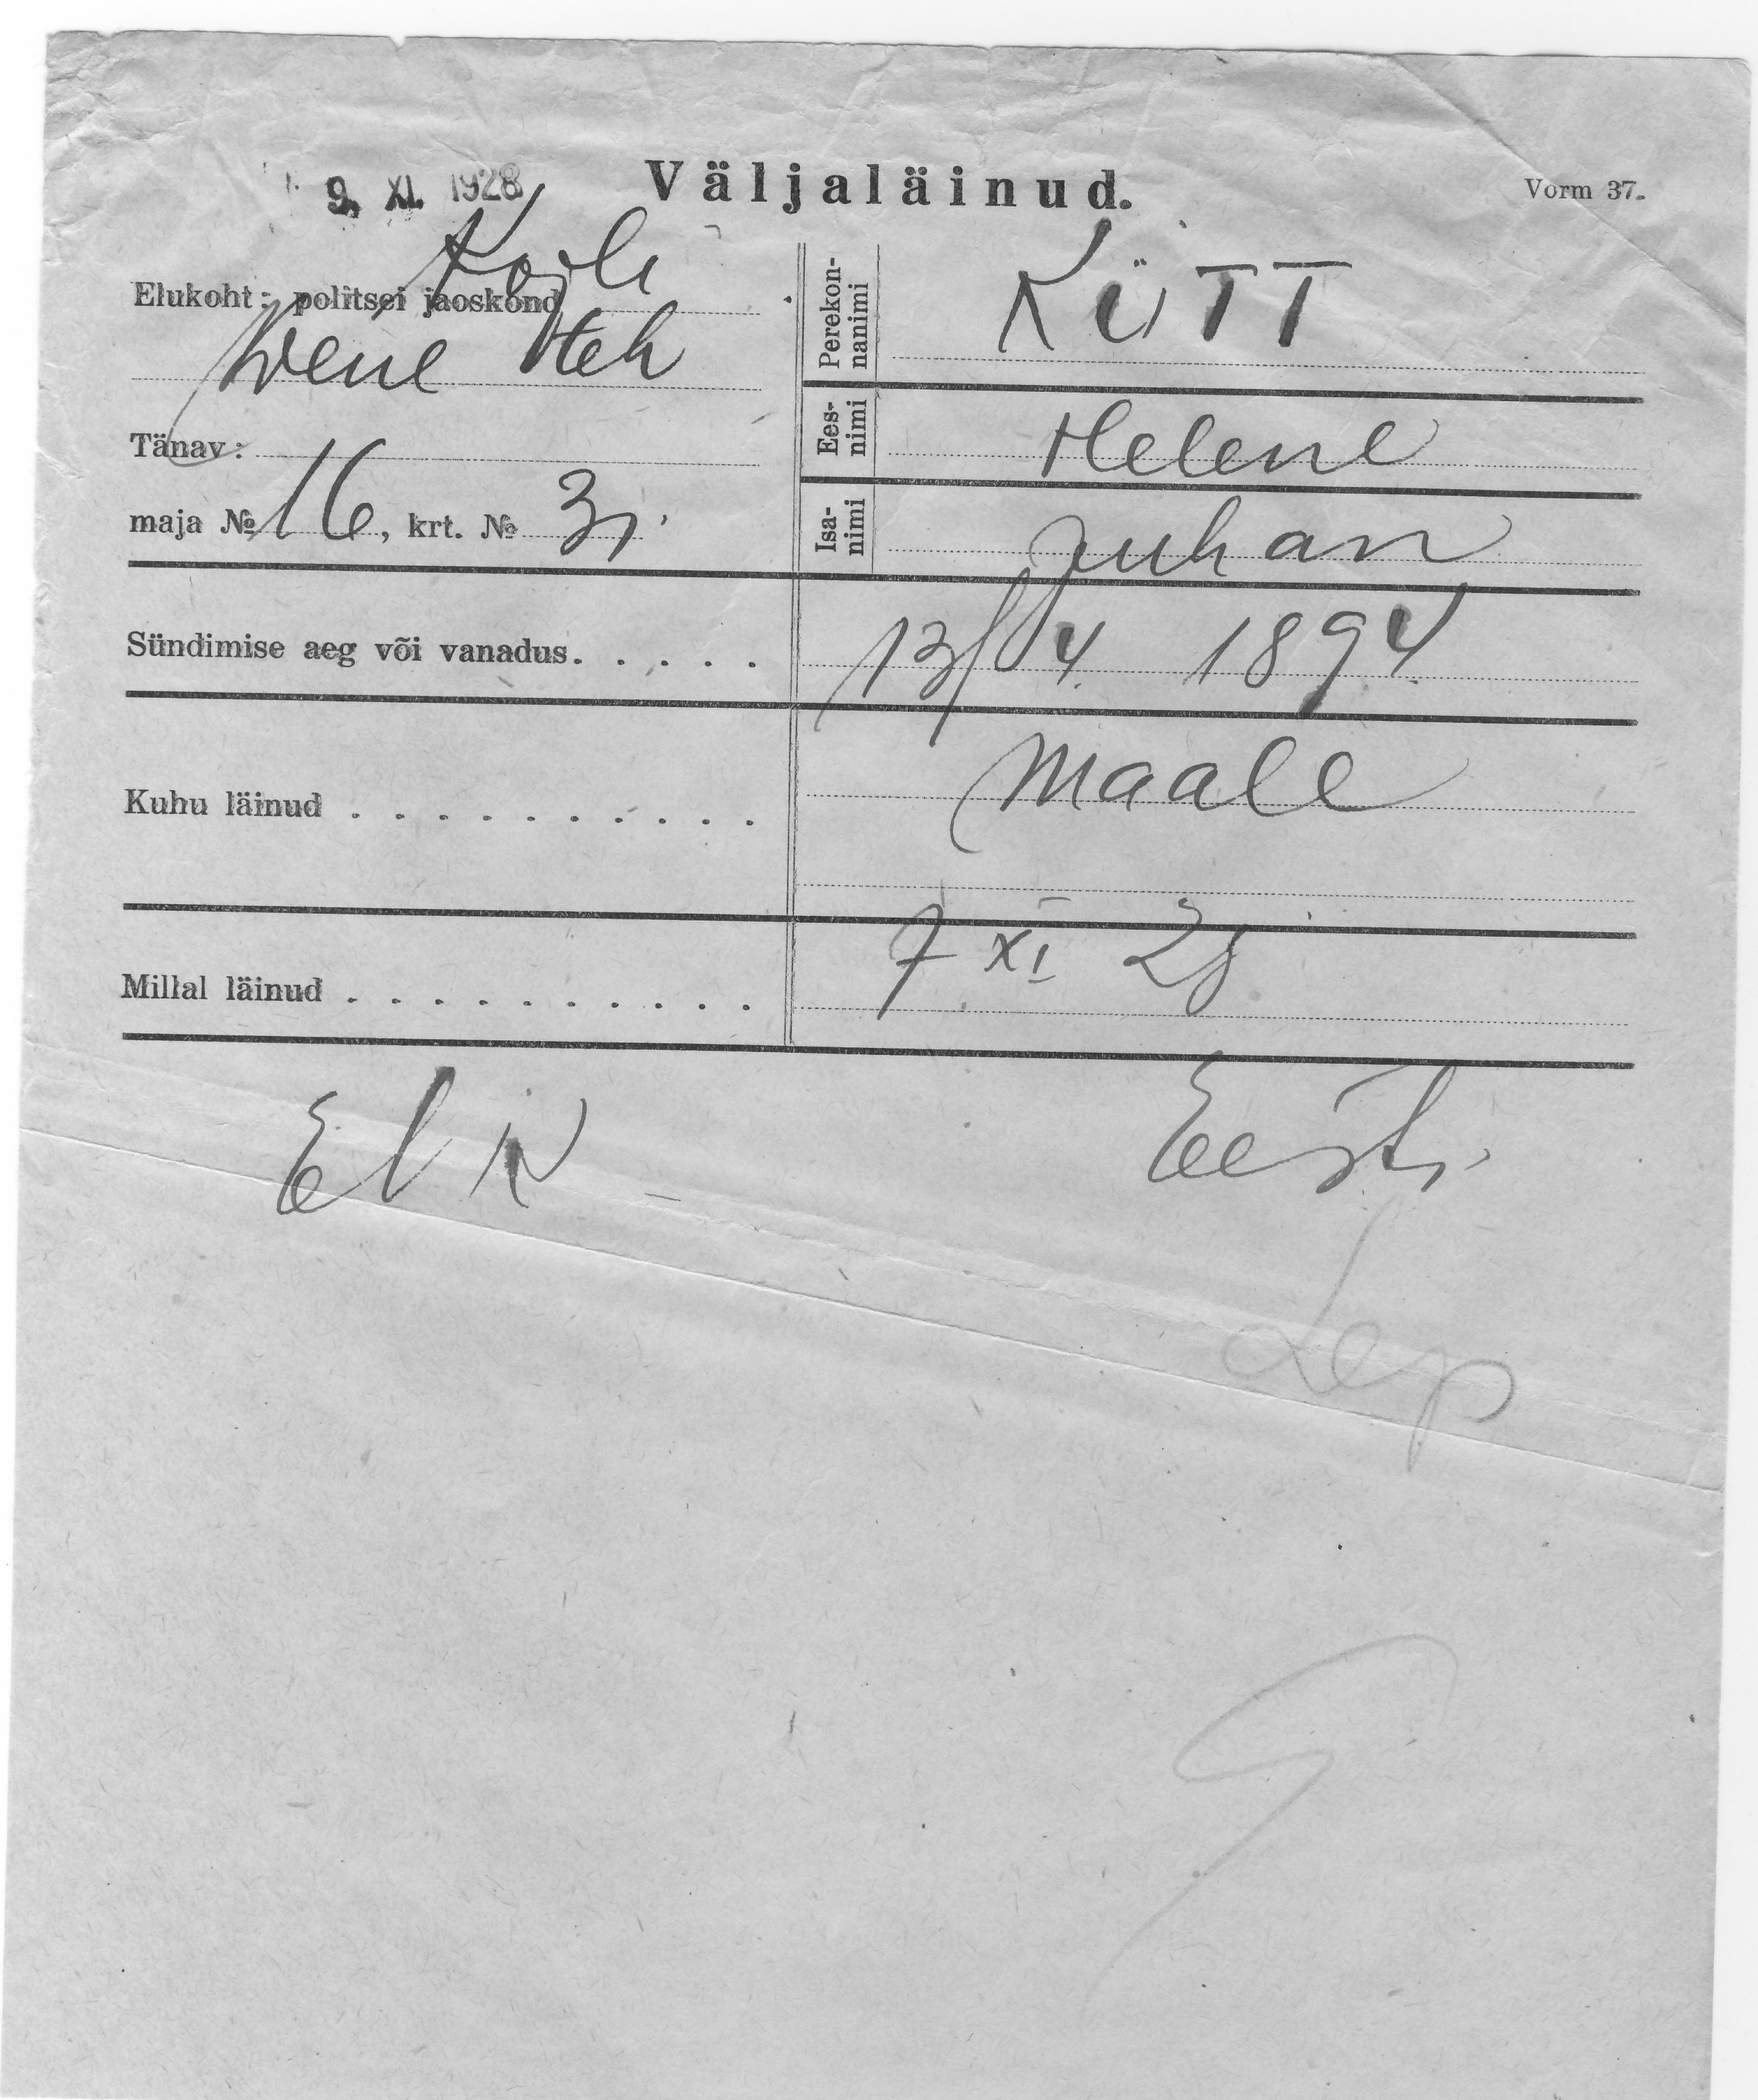 9. XI. 1928
Väljaläinud.
Vorm 37.
Elukoht: politsei jaoskond
Wene
Tänav:
maja № 16, krt. № 3
Perekonnanimi KÜTT
Eesnimi Helene
Isanimi Juhan
Sündimise aeg või vanadus. . . . . 13/4. 1894.
Kuhu läinud . . . . . . . . . . Maale
Millal läinud . . . . . . . . . . 7 XI 28
Eesti
Lep